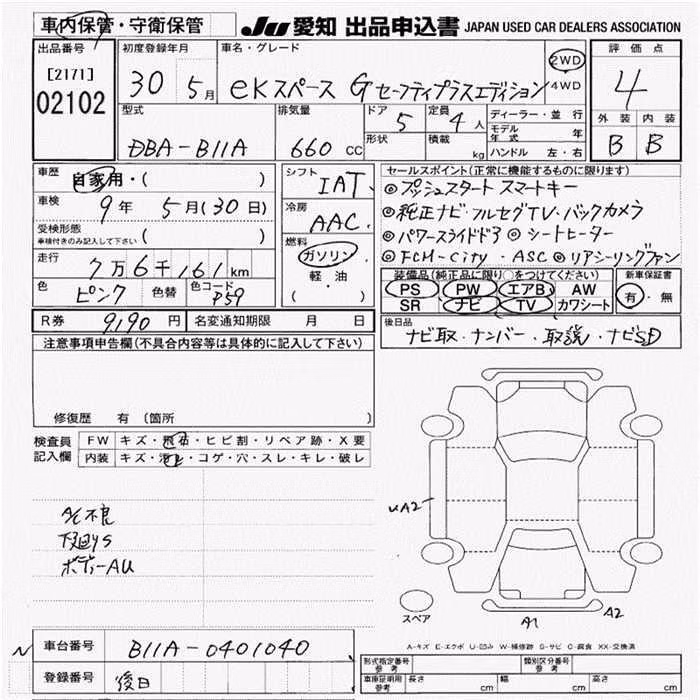 車内保管・守衛保管
JU 愛知 出品申込書 JAPAN USED CAR DEALERS ASSOCIATION
出品番号 初度登録年月 車名・グレード 評価点
[2171] 30 5月 eKスペース G セーフティプラスエディション 2WD 4
02102 4WD 外装 内装
型式 排気量 ドア 定員 ディーラー・並行 B B
DBA-B11A 660 CC 5 4人 モデル年式 年
形状 積載 kg ハンドル 左・右
車歴 自家用・( ) シフト IAT セールスポイント(正常に機能するものに限ります)
車検 9年 5月(30日) 冷房 AAC ◎プッシュスタート スマートキー
受検形態 ( ) ◎純正ナビ・フルセグTV・バックカメラ
車検付きのみ記入して下さい 燃料 ◎パワースライドドア ◎シートヒーター
走行 7万6千161km ガソリン ◎FCM-City・ASC ◎リアシーリングファン
色 ピンク 色替 色コード P59 軽・油 ( )
装備品(純正品に限り○をつけてください) 新車保証書
PS PW エアB AW 有・無
SR ナビ TV カワシート
R券 9190円 名変通知期限 月 日
後日品 ナビ取・ナンバー・取説・ナビSD
注意事項申告欄(不具合内容等は具体的に記入して下さい)
修復歴 有 (箇所 )
検査員記入欄 FW キズ・飛石・ヒビ割・リペア跡・X要
内装 キズ・汚れ・コゲ・穴・スレ・キレ・破レ
A/C不良
下廻りS
ボディーAU
UA2
スペア
A1 A2
A-キズ E-エクボ U-凹み W-補修跡 S-サビ C-腐食 XX-交換済
N 車台番号 B11A-0401040
登録番号 後日
形式指定番号 参考 類別区分番号 参考
車庫証明用 参考 長さ cm 幅 cm 高さ cm